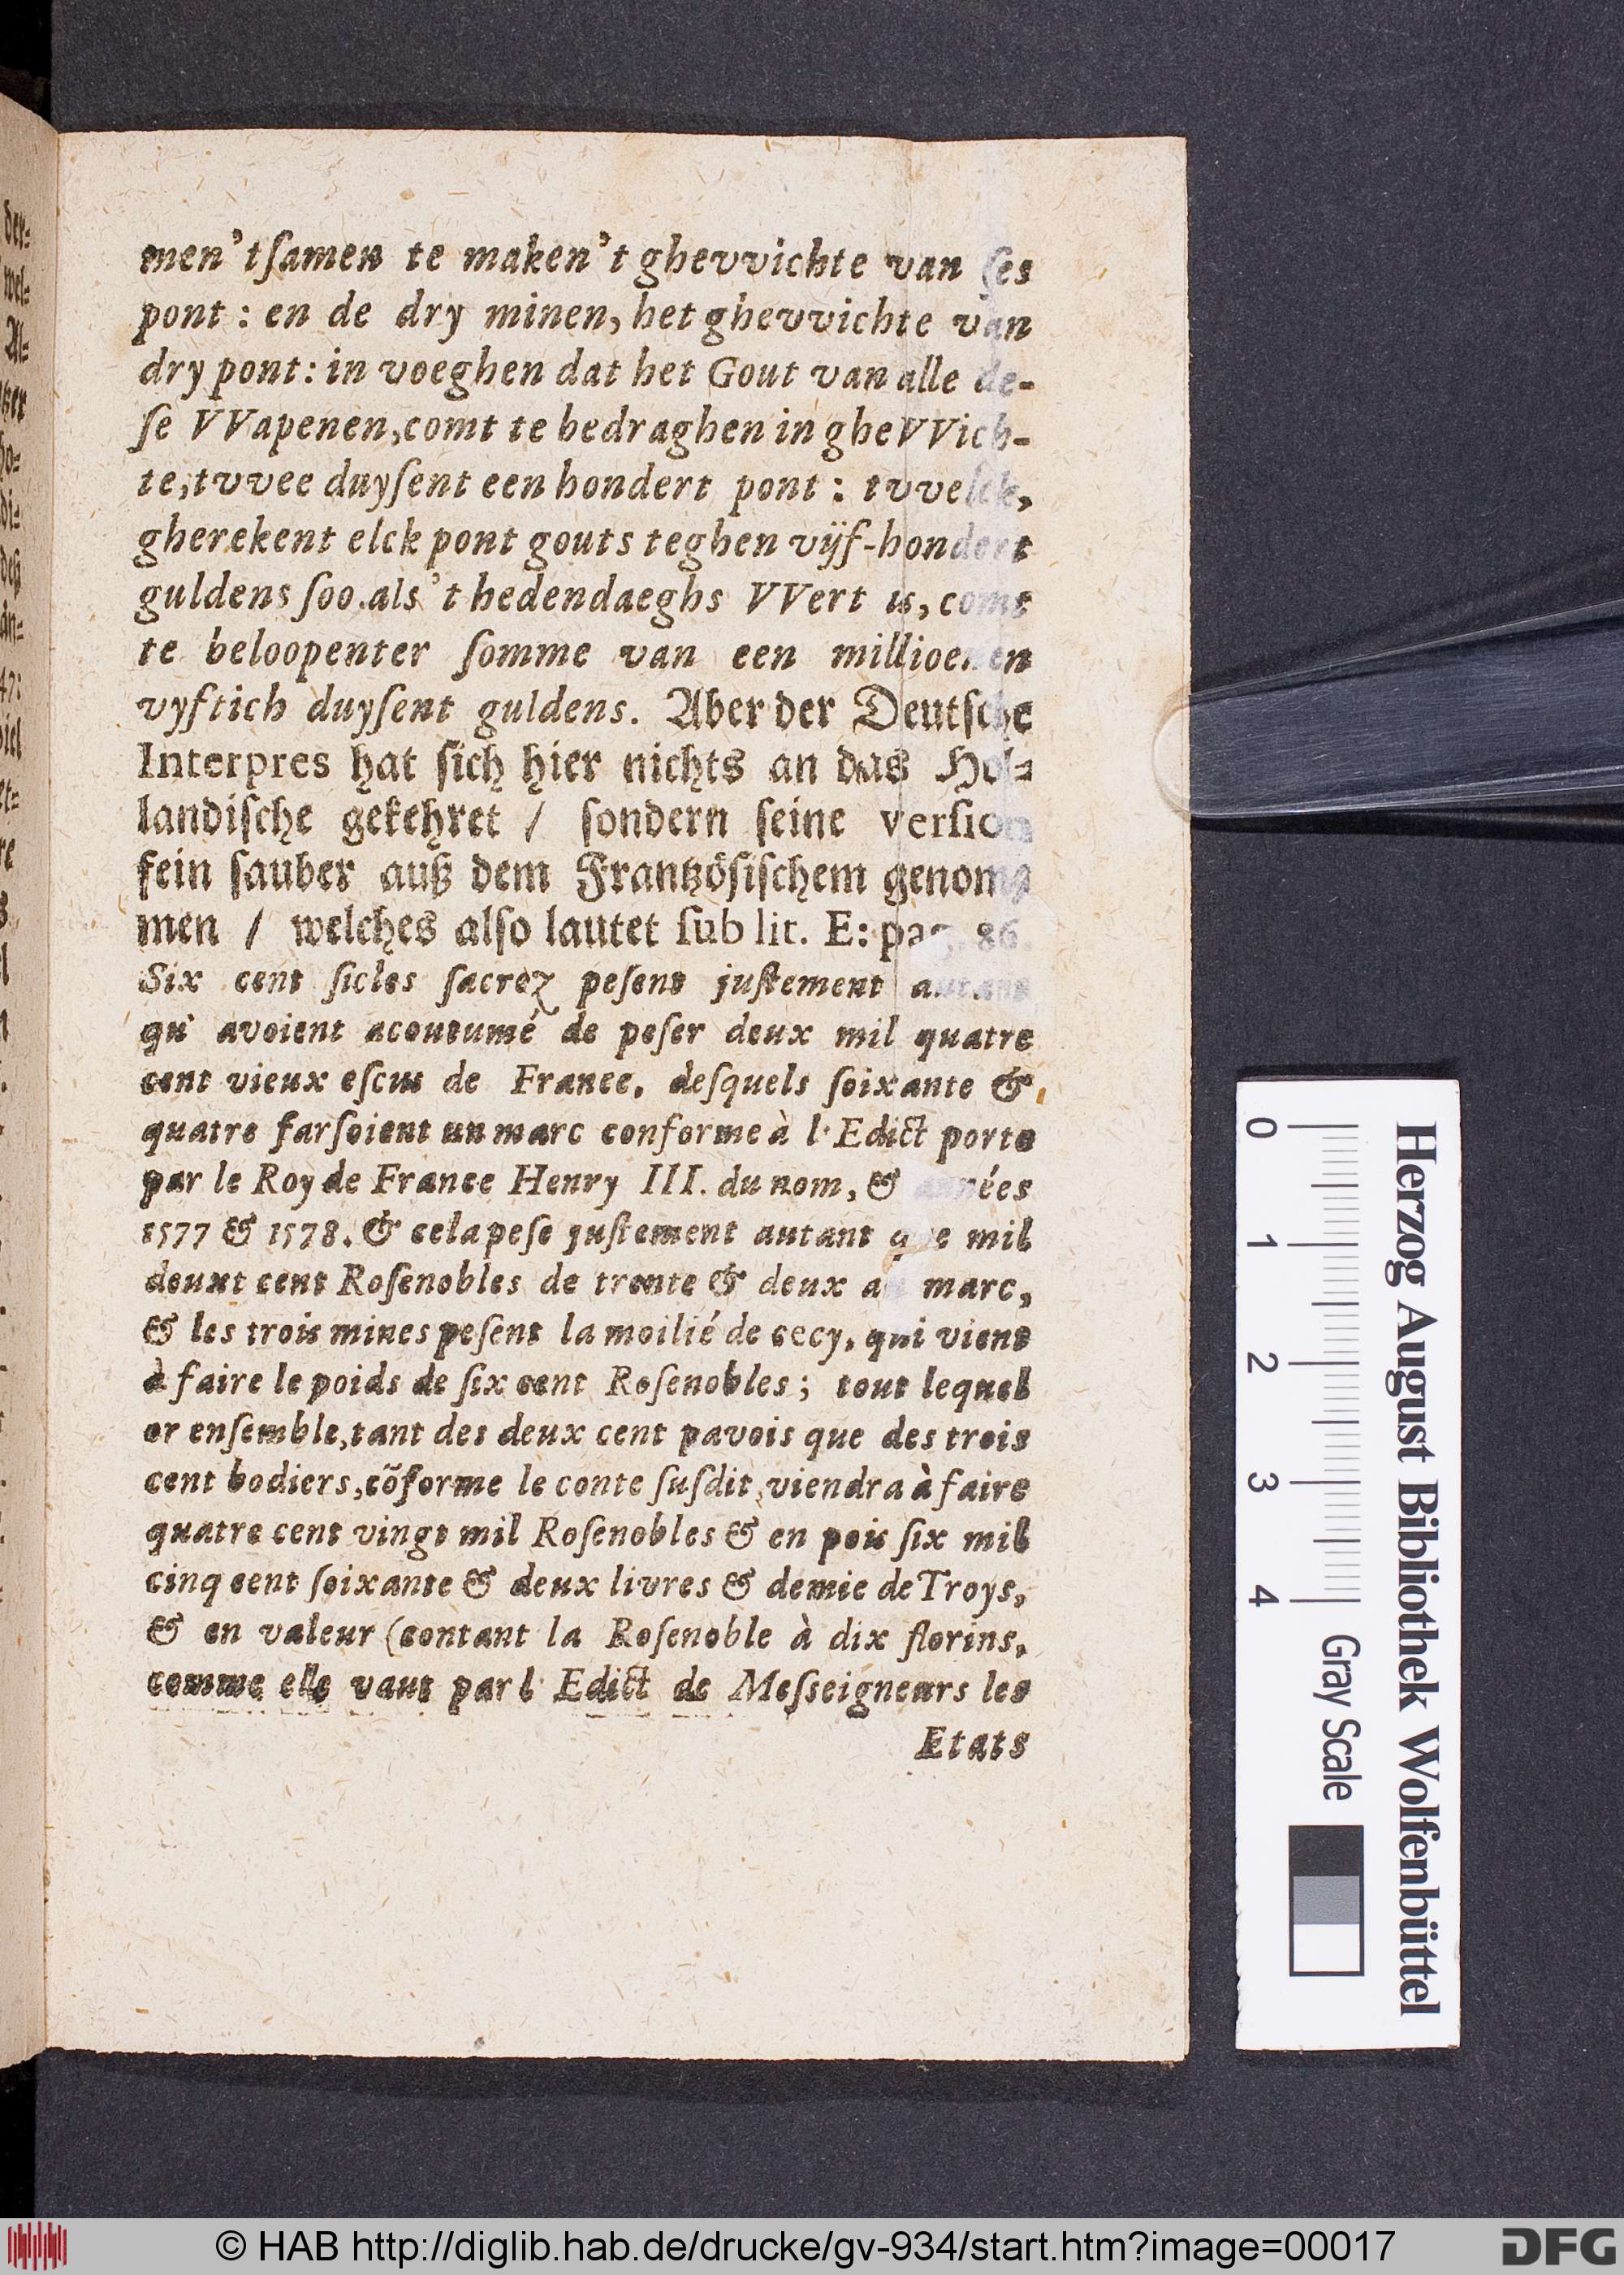 men'tſamen te maken't ghevvichte van ſes
pont : en de dry minen, het ghevvichte van
dry pont: in voeghen dat het Gout van alle de-
ſe VVapenen,comt te bedraghen in gheVVich-
te,tvvee duyſent een hondert pont : tvvelck,
gherekent elck pont gouts teghen vijf-hondert
guldens ſoo.als't hedendaeghs VVert is, comt
te beloopenter ſomme van een millioen en
vyftich duyſent guldens. Aber der Deutſche
Interpres hat ſich hier nichts an das Hol⸗
landiſche gekehret / ſondern ſeine verſion
fein ſauber auß dem Frantzöſiſchem genom⸗
men / welches alſo lautet ſub lit. E: pag. 86.
Six cent ſicles ſacrez peſent juſtement autant
qu' avoient acoutumé de peſer deux mil quatre
cent vieux eſcus de France, deſquels ſoixante &
quatre farſoient un marc conforme à l'Edict porte
par le Roy de France Henry III. du nom, & années
1577 & 1578. & cela peſe juſtement autant que mil
deuxt cent Roſenobles de trente & deux au marc,
& les trois mines peſent la moilié de cecy, qui vient
à faire le poids de ſix cent Roſenobles ; tout lequel
or enſemble,tant des deux cent pavois que des trois
cent bodiers,cõforme le conte ſuſdit,viendra à faire
quatre cent vingt mil Roſenobles & en pois ſix mil
cinq cent ſoixante & deux livres & demie de Troys,
& en valeur (contant la Roſenoble à dix florins,
comme elle vaut par l'Edict de Meſseigneurs les
Etats
der⸗
wel⸗
Al⸗
Herzog August Bibliothek Wolfenbüttel
0 1 2 3 4 Gray Scale
© HAB http://diglib.hab.de/drucke/gv-934/start.htm?image=00017
DFG